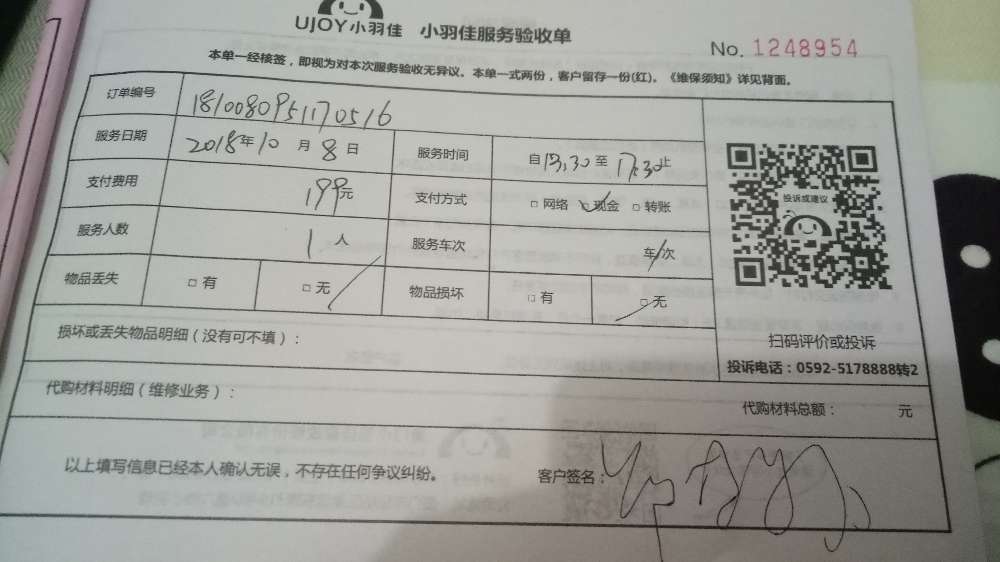 UJOY小羽佳 小羽佳服务验收单
No. 1248954
本单一经核签，即视为对本次服务验收无异议。本单一式两份，客户留存一份(红)。《维保须知》详见背面。
订单编号 181008095117 0516
服务日期 2018年10月8日 服务时间 自13:30至17:30止
支付费用 199元 支付方式 □网络 □现金 □转账
服务人数 1人 服务车次 车/次
物品丢失 □有 □无 物品损坏 □有 □无
投诉或建议
扫码评价或投诉
投诉电话：0592-5178888转2
损坏或丢失物品明细（没有可不填）：
代购材料明细（维修业务）： 代购材料总额： 元
以上填写信息已经本人确认无误，不存在任何争议纠纷。 客户签名：